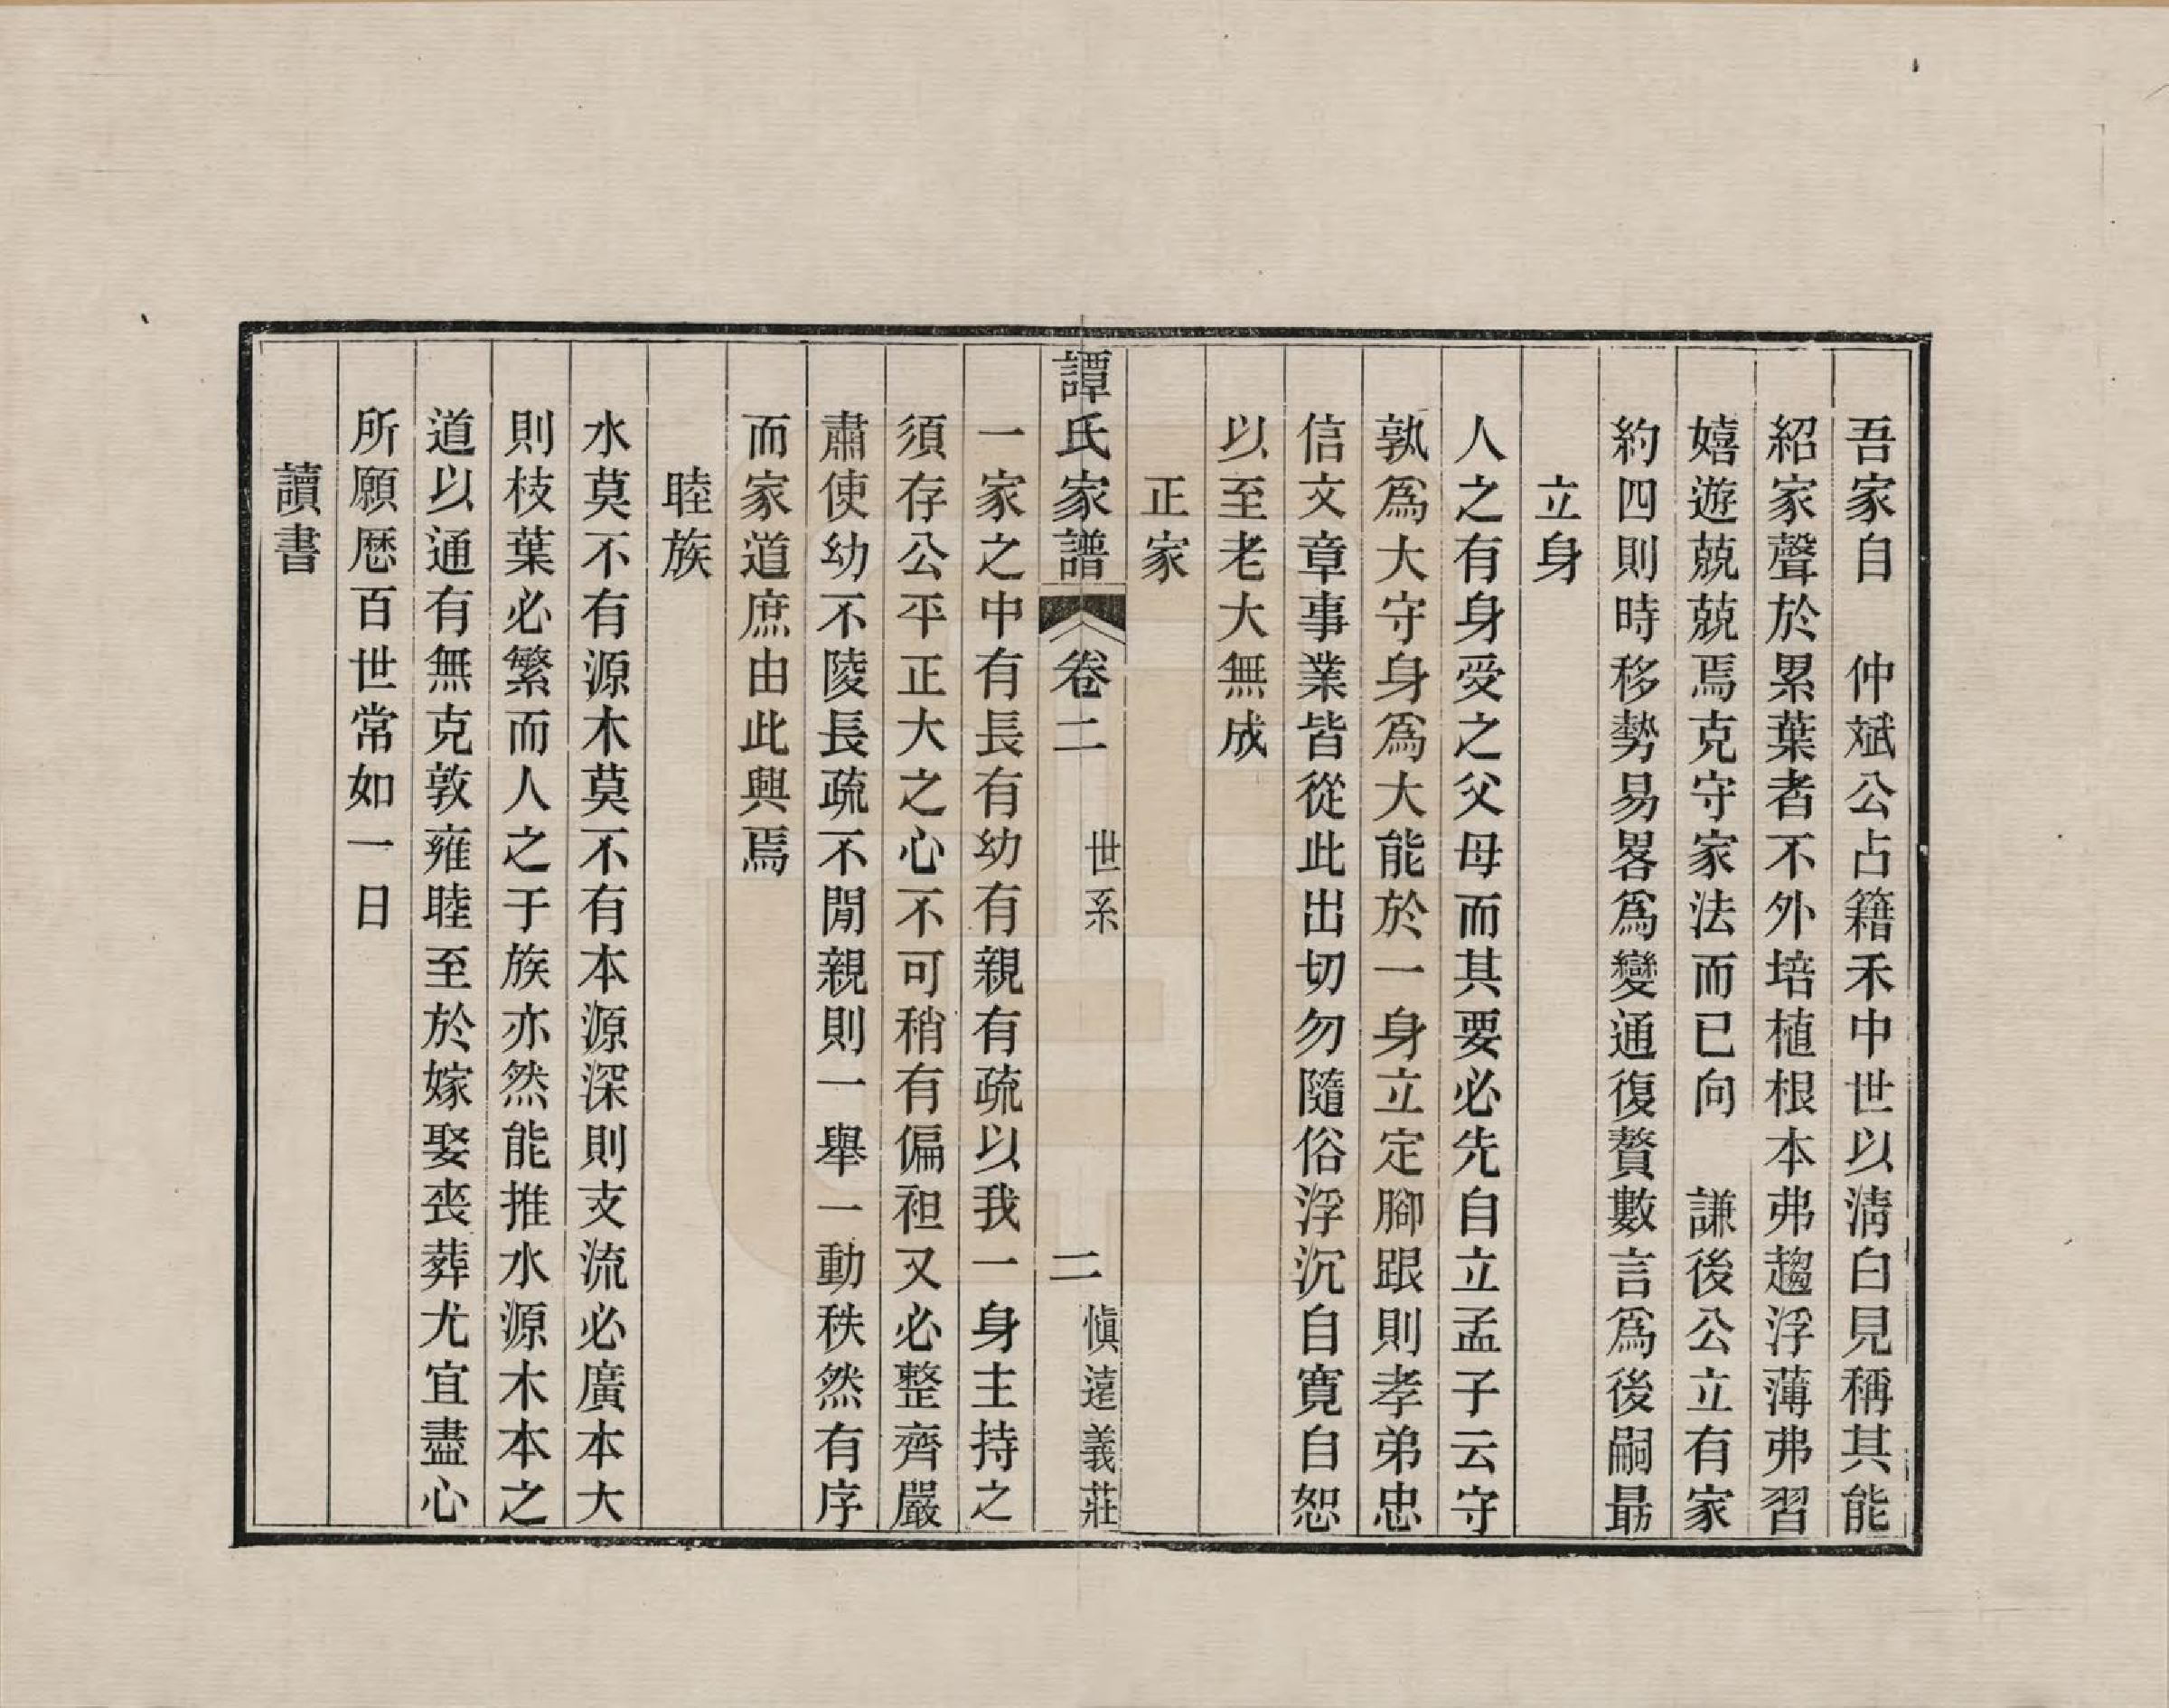 吾家自　仲斌公占籍禾中世以淸白見稱其能
紹家聲於累葉者不外培植根本弗趨浮薄弗習
嬉遊兢兢焉克守家法而已向　謙後公立有家
約四則時移勢易畧爲變通復贅數言爲後嗣最
立身
人之有身受之父母而其要必先自立孟子云守
孰爲大守身爲大能於一身立定腳跟則孝弟忠
信文章事業皆從此出切勿隨俗浮沉自寬自恕
以至老大無成
正家
譚氏家譜　卷二　世系　二　愼遠義莊
一家之中有長有幼有親有疏以我一身主持之
須存公平正大之心不可稍有偏袒又必整齊嚴
肅使幼不陵長疏不閒親則一舉一動秩然有序
而家道庶由此興焉
睦族
水莫不有源木莫不有本源深則支流必廣本大
則枝葉必繁而人之于族亦然能推水源木本之
道以通有無克敦雍睦至於嫁娶丧葬尤宜盡心
所願歷百世常如一日
讀書